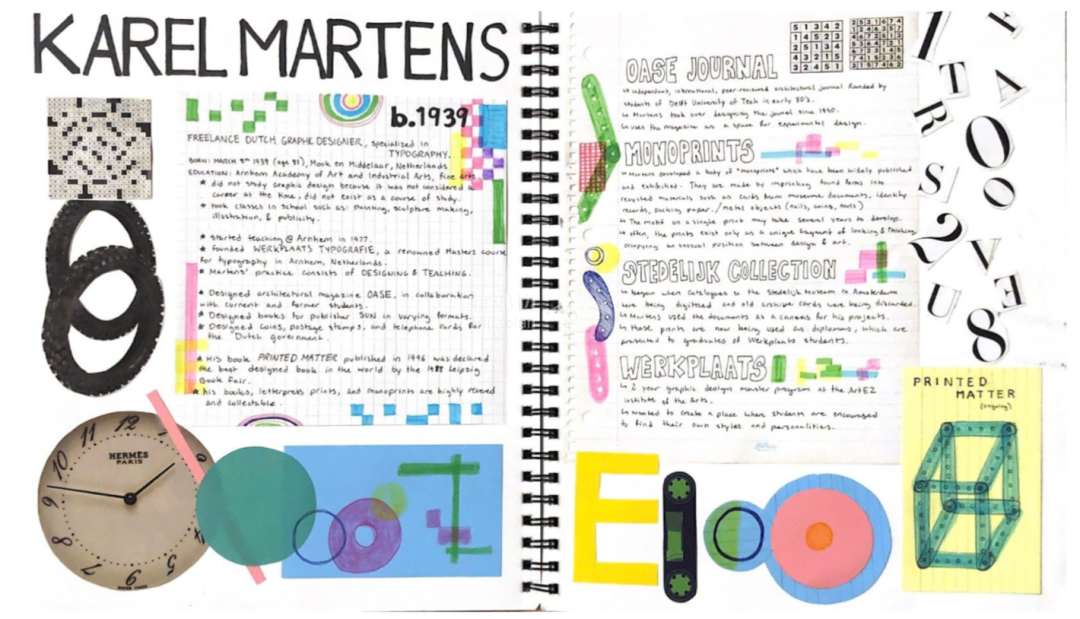 KAREL MARTENS
b.1939
FREELANCE DUTCH GRAPHIC DESIGNER, specialized in
TYPOGRAPHY.
BORN: MARCH 5TH 1939 (age 81), Mook en Middelaar, Netherlands
EDUCATION: Arnhem Academy of Art and Industrial Arts, fine arts
★ did not study graphic design because it was not considered a
career at the time, did not exist as a course of study.
★ took classes in school such as: painting, sculpture making,
illustration, & publicity.
★ started teaching @ Arnhem in 1977.
★ Founded WERKPLAATS TYPOGRAFIE, a renowned Masters course
for typography in Arnhem, Netherlands.
★ Martens' practice consists of DESIGNING & TEACHING.
★ Designed architectural magazine OASE, in collaboration
with current and former students.
★ Designed books for publisher SUN in varying formats.
★ Designed coins, postage stamps, and telephone cards for
the Dutch government.
★ His book PRINTED MATTER published in 1996 was declared
the best designed book in the world by the Leipzig
Book Fair.
★ his books, letterpress prints, and monoprints are highly revered
and collectable.
12
11
10
9
8
6
5
HERMÈS
PARIS
OASE JOURNAL
↳ independent, international, peer-reviewed architectural journal founded by
students of Delft University of Tech in early 80's.
↳ Martens took over designing the journal since 1990.
↳ uses the magazine as a space for experimental design.
5 1 3 4 2
1 4 5 2 3
2 5 1 3 4
4 3 2 1 5
3 2 4 5 1
MONOPRINTS
↳ Martens developed a body of "monoprints" which have been widely published
and exhibited. They are made by imprinting found forms into
recycled materials such as cards from museums, documents, identity
records, packing paper, / metal objects (nails, coins, tools)
↳ The motif on a single print may take several years to develop.
↳ often, the prints exist only as a unique fragment of looking & thinking,
occupying an unusual position between design & art.
STEDELIJK COLLECTION
↳ began when catalogues to the Stedelijk Museum in Amsterdam
were being digitised and old archive cards were being discarded.
↳ Martens used the documents as a canvas for his projects.
↳ these prints are now being used as diplomas, which are
presented to graduates of Werkplaats students.
WERKPLAATS
↳ 2 year graphic design master program at the ArtEZ
institute of the Arts.
↳ wanted to create a place where students are encouraged
to find their own styles and personalities.
T
A
R
O
S
2
V
E
U
8
PRINTED
MATTER
(ongoing)
E